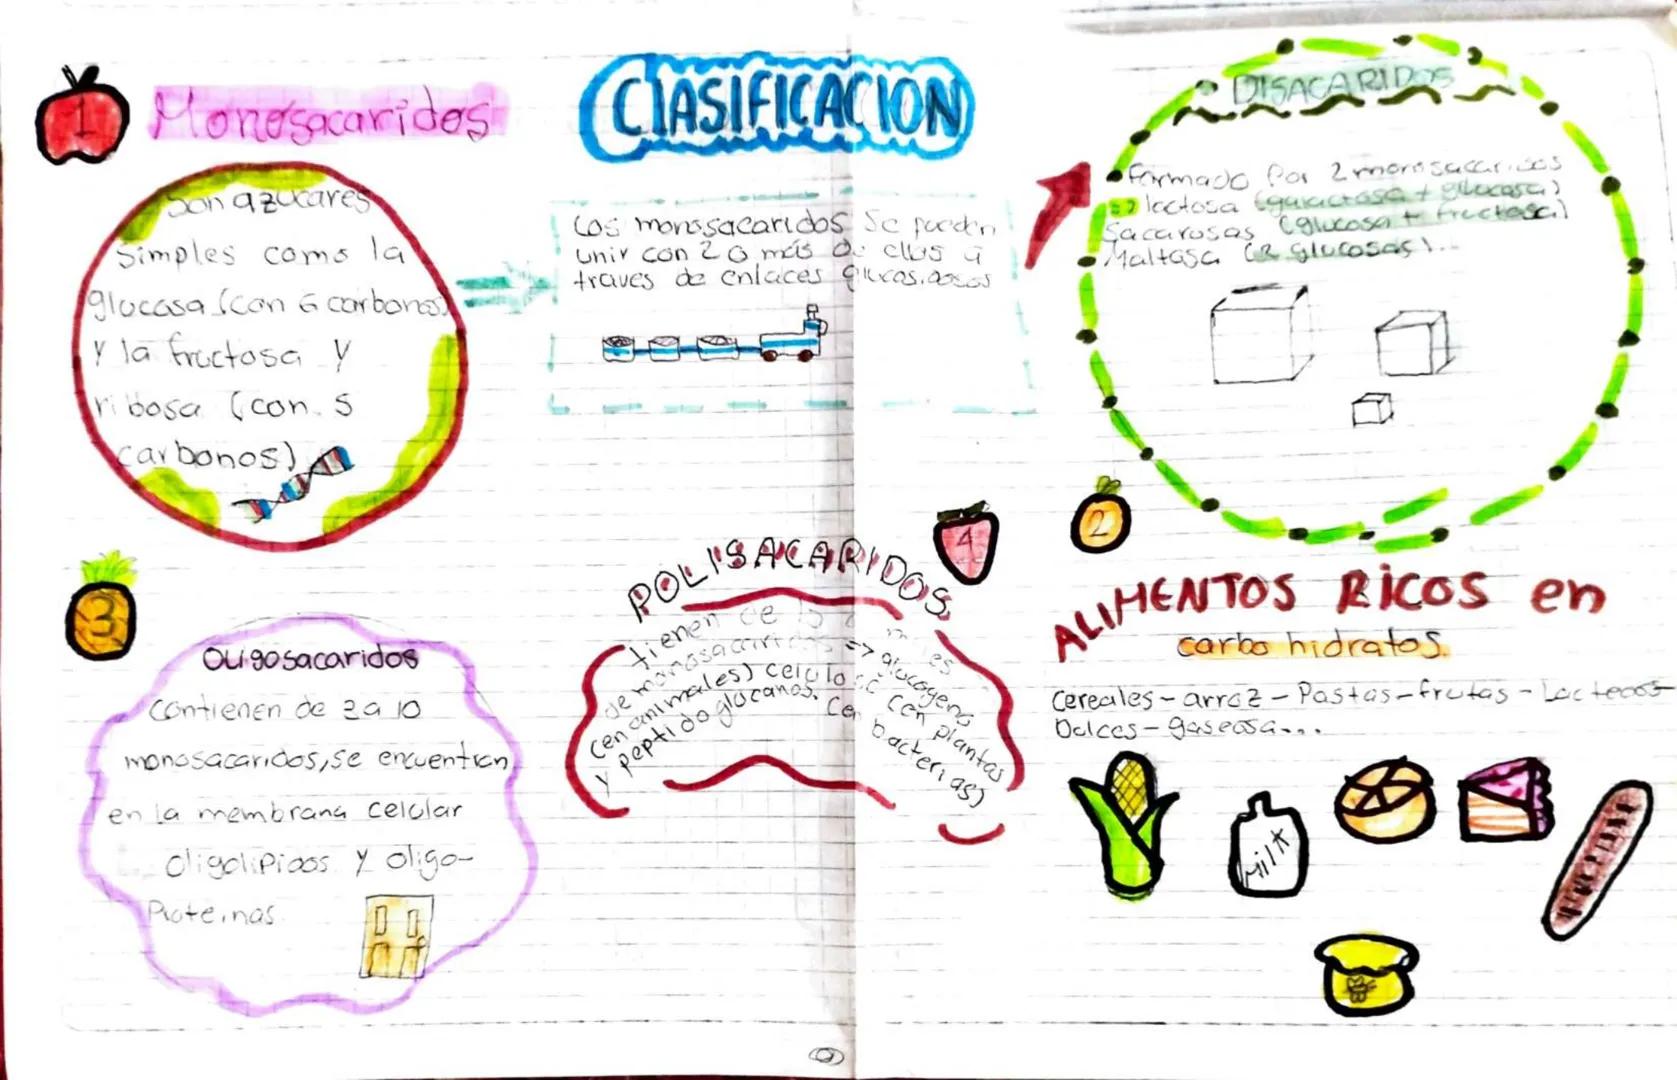 CLASIFICACION
1
Monosacaridos
Son azucares
simples como la
glucosa (con 6 carbonos)
y la fructosa y
ribosa (con 5
carbonos)
Los monosacaridos se pueden
unir con 2 o más de ellos a
traves de enlaces
DISACARIDOS
formado por 2 monosacaridos
=> lactosa (galactosa + glucosa)
Sacarosas (glucosa + fructosa)
Maltosa (2 glucosas)...
2
3
Oligosacaridos
contienen de 2 a 10
monosacaridos, se encuentran
en la membrana celular
oligolipidos y oligo-
Proteinas
4
POLISACARIDOS
tienen de miles
de monosacaridos => glucogeno
(en animales) (en plantas
y peptidoglucanos. (en bacterias)
ALIMENTOS RICOS en
carbohidratos.
Cereales - arroz - Pastas - frutas - Lacteos
Dulces - gaseosa...
Milk